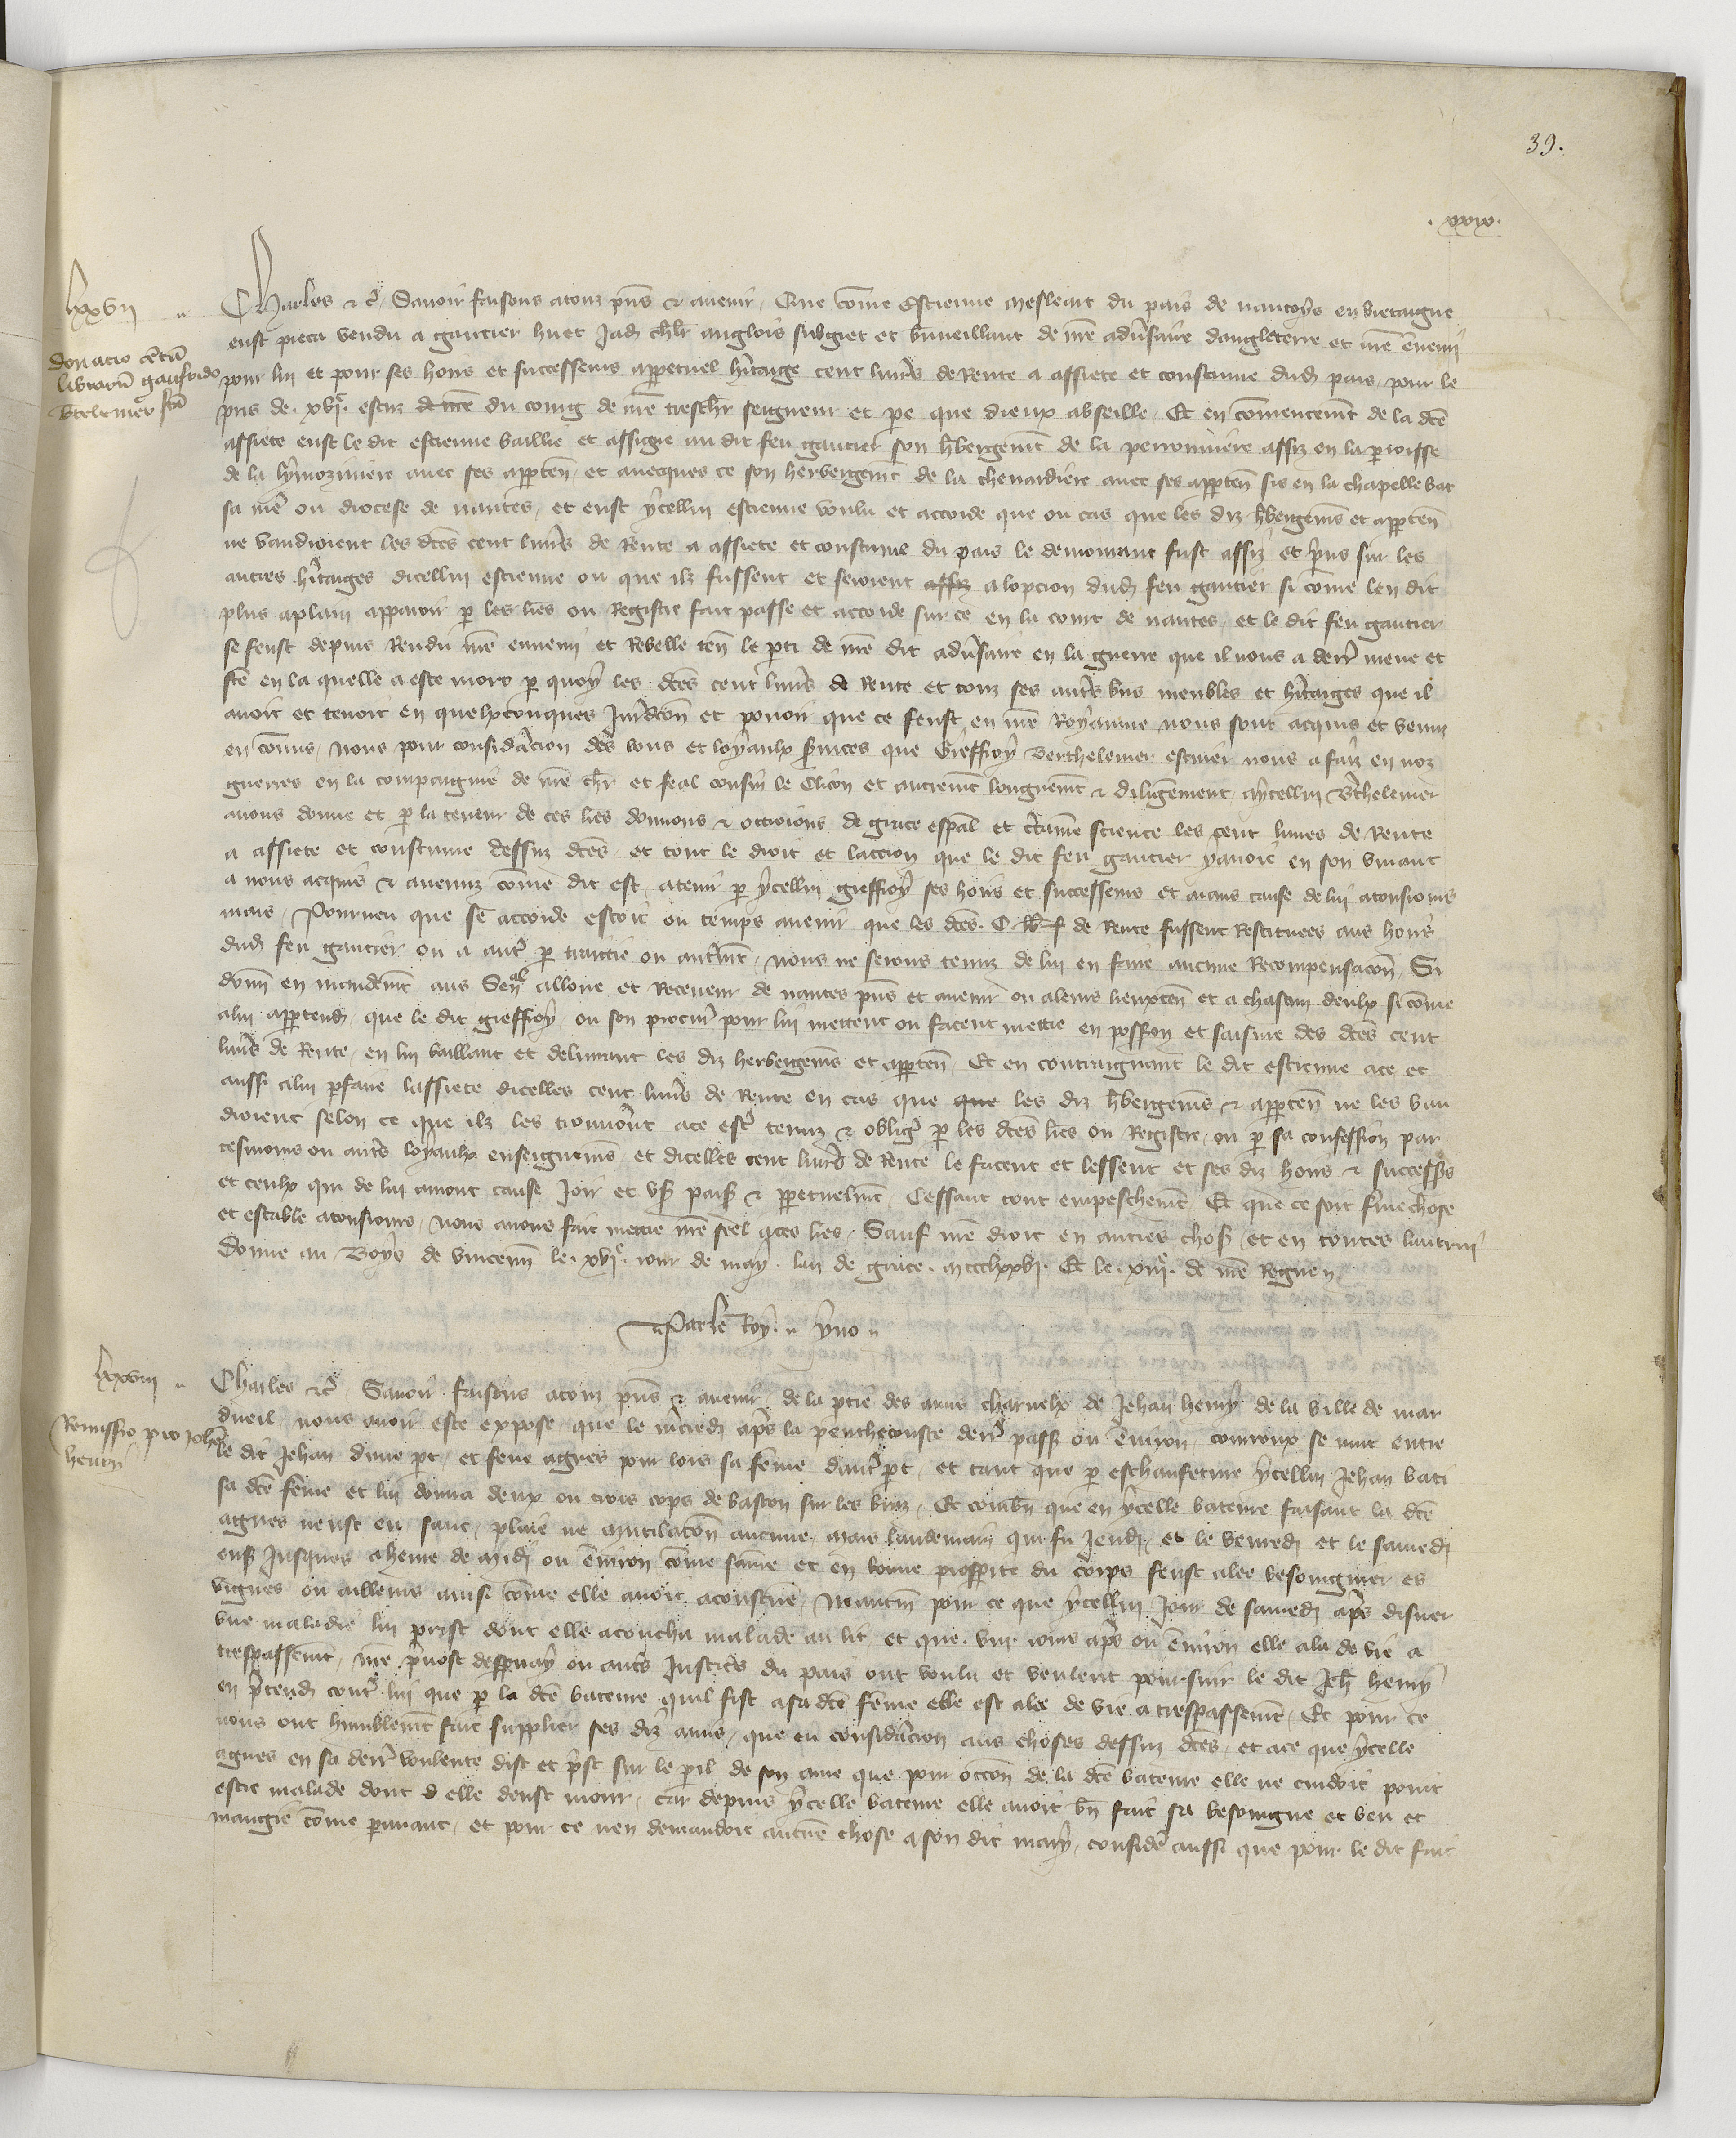 39.
. xxxix.
lxxvii
donatio centu
librarum gaufrido
Btelemer fca
Charles & c̃. Savoir faisons a touz pñs & avenir. Que cõme Estienne Mesleart du pais de nantoys en bretaigne
eust pieca vendu a gautier huet Jadiz chl̃r anglois subgiet et bñveillant de nr̃e adũsaire dangleterre et nr̃e ẽnemi
pour lui et pour ses hoirs et successeurs a ppetuel h̃itaige cent liuṽs de Rente a assiete et coustume dudit pais pour le
pris de . xvjc. escuz de nr̃e du coing de nr̃e treschr̃ seigneur et pe que dieux absoille . Et en cõmencemt de la dc̃e
assiete eust le dit estienne baillie et assigne au dit feu gautier son h̃bergemt de la perroniniere assiz en la pροisse
de la lymoziniere avec ses apptẽn et avecques ce son herbergemt de la chenardiere avec ses apptẽn sis en la chapelle bas
sa mẽ ou diocese de nantes , et eust ycellui estienne voulu et accorde que ou cas que les diz h̃bergemens et apptẽn
ne vaudroient les dc̃es cent liuṽs de Rente a assiete et coustume du pais le demourant fust assiz et p̃ns sur les
autres h̃itaiges dicellui estienne ou que ilz fussent et seroient assiz a lopcion dudit feu gautier si cõme len dit
plus aplain apparoir p les lr̃es ou Registre fait passe et accorde sur ce en la court de nantes , et le dit feu gautier
se feust depuis Rendu nr̃e ennemi et Rebelle teñ le pti de nr̃e dit adũsaire en la guerre que il nous a derñ mene et
fc̃e en la quelle a este mort p quoy les dc̃es cent liuṽs de Rente et touz ses autr̃s biẽs meubles et h̃itaiges que il
avoit et tenoit en quelxconques Jurĩdcõn et povoir que ce feust en nr̃e Royaume nous sont acquis et venuz
en cõmis , Nous pour considãcion des bons et loyaulx s̃uices que Gieffroy Berthelemer escuier nous a faiz en noz
guerres en la compaignie de nr̃e chr̃ et feal cousin le s̃. de Clicon et autremt longuemt & diligẽment , aycellui B̃thelemer
avons donne et p la teneur de ces lr̃es donnons & octroions de grace esp̃al et c̃taine science les cent livres de Rente
a assiete et coustume dessuz dc̃es et tout le droit et laccion que le dit feu gautier y avoit en son vivant
a nous acquis & avenuz cõme dit est , atenir p ycellui gieffroy ses hoirs et successeurs et aians cause de lui atousiours
mais , Pourveu que se accorde estoit ou temps avenir que les dc̃es . C lb̃r. de Rente fussent Restituees aus hoirs
dudit feu gautier ou a autr̃ p traittie ou autremt , nous ne serons tenuz de lui en faire aucune Recompensacõn , Si
donñ en mandemt aus Señal alloue et Receveur de nantes pñs et avenir ou a leurs lieuxteñ et a chascun deulx si cõme
a lui apptendra , que le dit gieffroy ou son procur̃ pour lui mettent ou facent mettre en possõn et saisine des dc̃es cent
liuṽs de Rente , en lui baillant et delivrant les diz herbergemens et apptẽn , Et en contraignant le dit estienne a ce et
aussi a lui pfaire lassiete dicelles cent liuṽs de Rente en cas que que les diz h̃bergemens & apptẽn ne les vau
droient selon ce que ilz les trouver̃nt a ce estr̃ tenuz & obligr̃ p les dc̃es lr̃es ou Registre , ou p sa confession par
tesmoins ou autr̃s loyaulx enseignemens et dicelles cent liuṽs de Rente le facent et lessent et ses diz hoirs & success̃s
et ceulx qui de lui auront cause Joir et us̃ paisib. & ppetuelmt , Cessant tout empeschemt , Et que ce soit ferme chose
et estable atousiours , nous avons fait mettre nr̃e seel a ces lr̃es . Sauf nr̃e droit en autres choses , et en toutes lautrui
Donne au Boys de vinceñn le . xvje. iour de may . lan de grace . mccclxxvj. Et le . xiije. de nr̃e Regne
Par le Roy. Yvo
lxxviii
Remissio pro Johẽ
henrici
Charles &c̃ . Savoir faisons a touz pñs & avenir , de la ptie des amis charnelx de Jehan henry de la ville de mar
dueil nous avoir este expose que le mr̃credi ap̃s la penthecouste derñ passe ou ẽnviron , couroux se mut entre
le dit Jehan dune pt , et feue agnes pour lors sa fẽme dautr̃ pt , et tant que p eschaufeture ycellui Jehan bati
sa dc̃e fẽme et lui donna deux ou trois cops de baston sur les braz , Et combñ que en ycelle bateure faisant la dc̃e
agnes neust eu sanc , plaie ne Mutilacõn aucune , mais lendemain qui fu Jeudi , et le vendredi et le samedi
ens̃ Jusques a heure de Midi ou ẽnviron cõme saine et en bonne prospite du corps feust alee besoingnier es
vignes ou ailleurs ainsi cõme elle avoit acoustumé , Neantm̃ pour ce que ycellui Jour de samedi ap̃s disner
une maladie lui prist dont elle acoucha malade au lit et que . viii. iours ap̃s ou ẽnviron elle ala de vie a
trespassemt , nr̃e prevost desparnay ou autr̃s Justices du pais ont voulu et veulent poursuir le dit Jeh. henry
en p̃tendant contr̃ lui que p la dc̃e bateure quil fist a sa dc̃e fẽme elle est alee de vie a trespassemt , Et pour ce
nous ont humblemt fait supplier ses diz amis , que en considãcion aus choses dessuz dc̃es , et a ce que ycelle
agnes en sa derñ voulente dist et prist sur le peril de son ame que pour occõn de la dc̃e bateure elle ne cuidoit point
estre malade dont elle deust mourir , car depuis ycelle bateure elle avoit bñ fait sa besoingne et beu et
mangie cõme p avant , et pour ce nen demandoit aucune chose a son dit mary , considere aussi que pour le dit fait